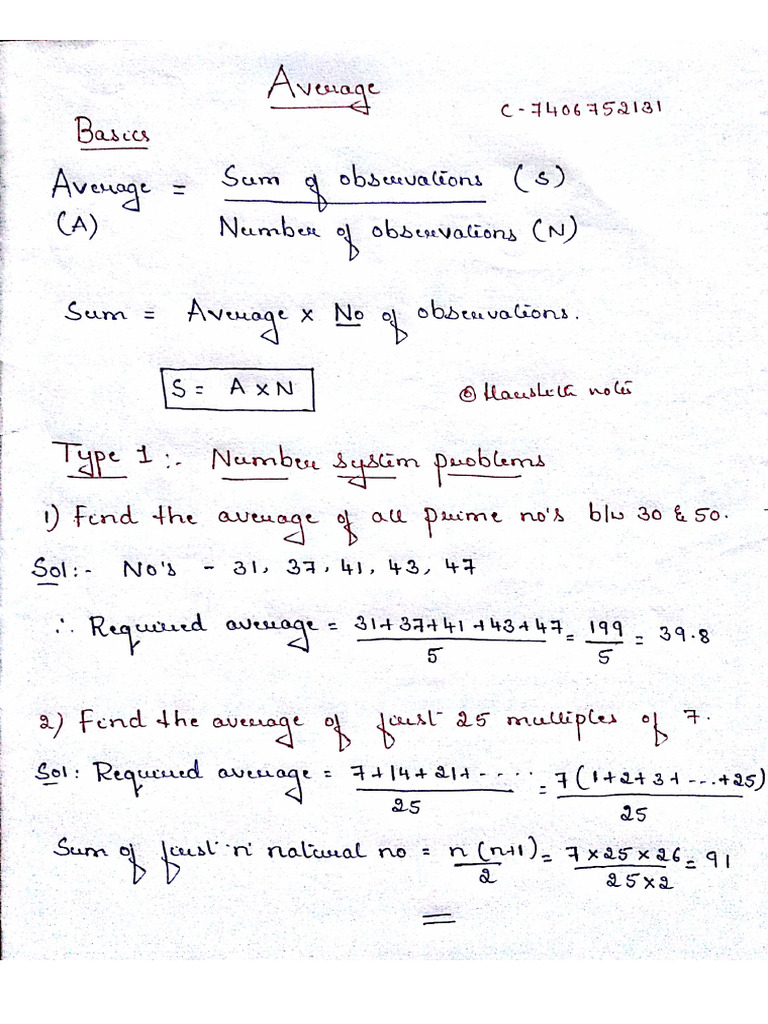 Average
C-7406752131
Basics
Average = Sum of observations (S)
(A) Number of observations (N)
Sum = Average x No of observations.
S = A x N
notes
Type 1 :- Number system problems
1) Find the average of all prime no's b/w 30 & 50.
Sol :- No's - 31, 37, 41, 43, 47
∴ Required average = 31+37+41+43+47 = 199 = 39.8
5 5
2) Find the average of first 25 multiples of 7.
Sol : Required average = 7+14+21+ - .... = 7(1+2+3+ -...+25)
25 25
Sum of first 'n' natural no = n(n+1) = 7×25×26 = 91
2 25×2